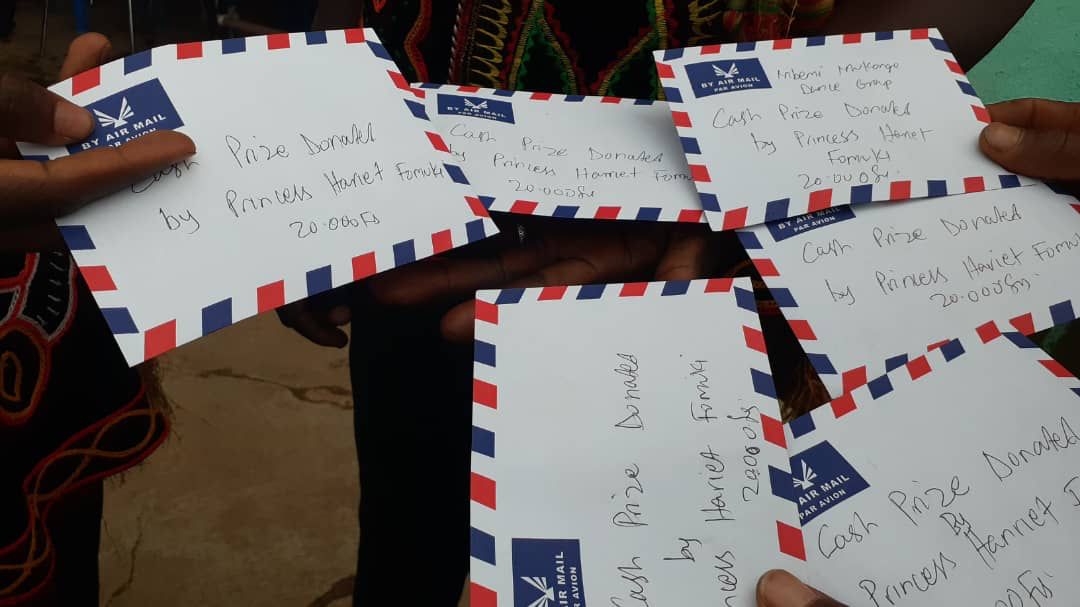 BY AIR MAIL
PAR AVION
Cash Prize Donated
by Princess Hariet Fomuki
20.000Fs
BY AIR MAIL
PAR AVION
Cash Prize Donated
by Princess Harriet
20.000Frs
BY AIR MAIL
PAR AVION
Mbemi Mukongo
Dance Group
Cash Prize Donated
by Princess Hariet
Fomuki
20.000frs.
PAR AVION
Cash Prize Donated
by Princess Hariet
20.000frs
AIR MAIL
AVION
Cash Prize Donated
by
Hariet Fomuki
20.000frs
AIR MAIL
PAR AVION
Cash Prize Donated
By
Princess Harriet